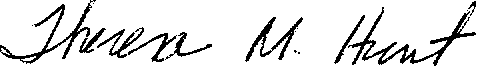 Theresa M. Hunt